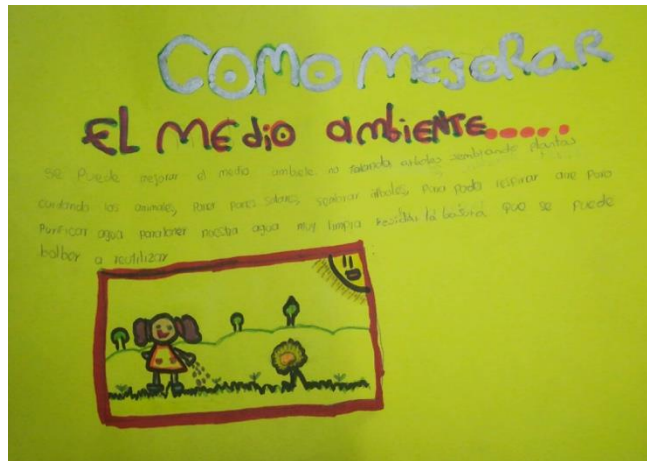 COMO MEJORAR
EL MEDIO AMBIENTE.....
Se Puede mejorar el medio ambiete no talando arboles sembrando plantas
cuidando los animales, Poner Panes solares, sembrar árboles, Para poder respirar aire Puro
Purificar agua para tener nuestra agua muy limpia la basura que se Puede
bolber a reutilizar